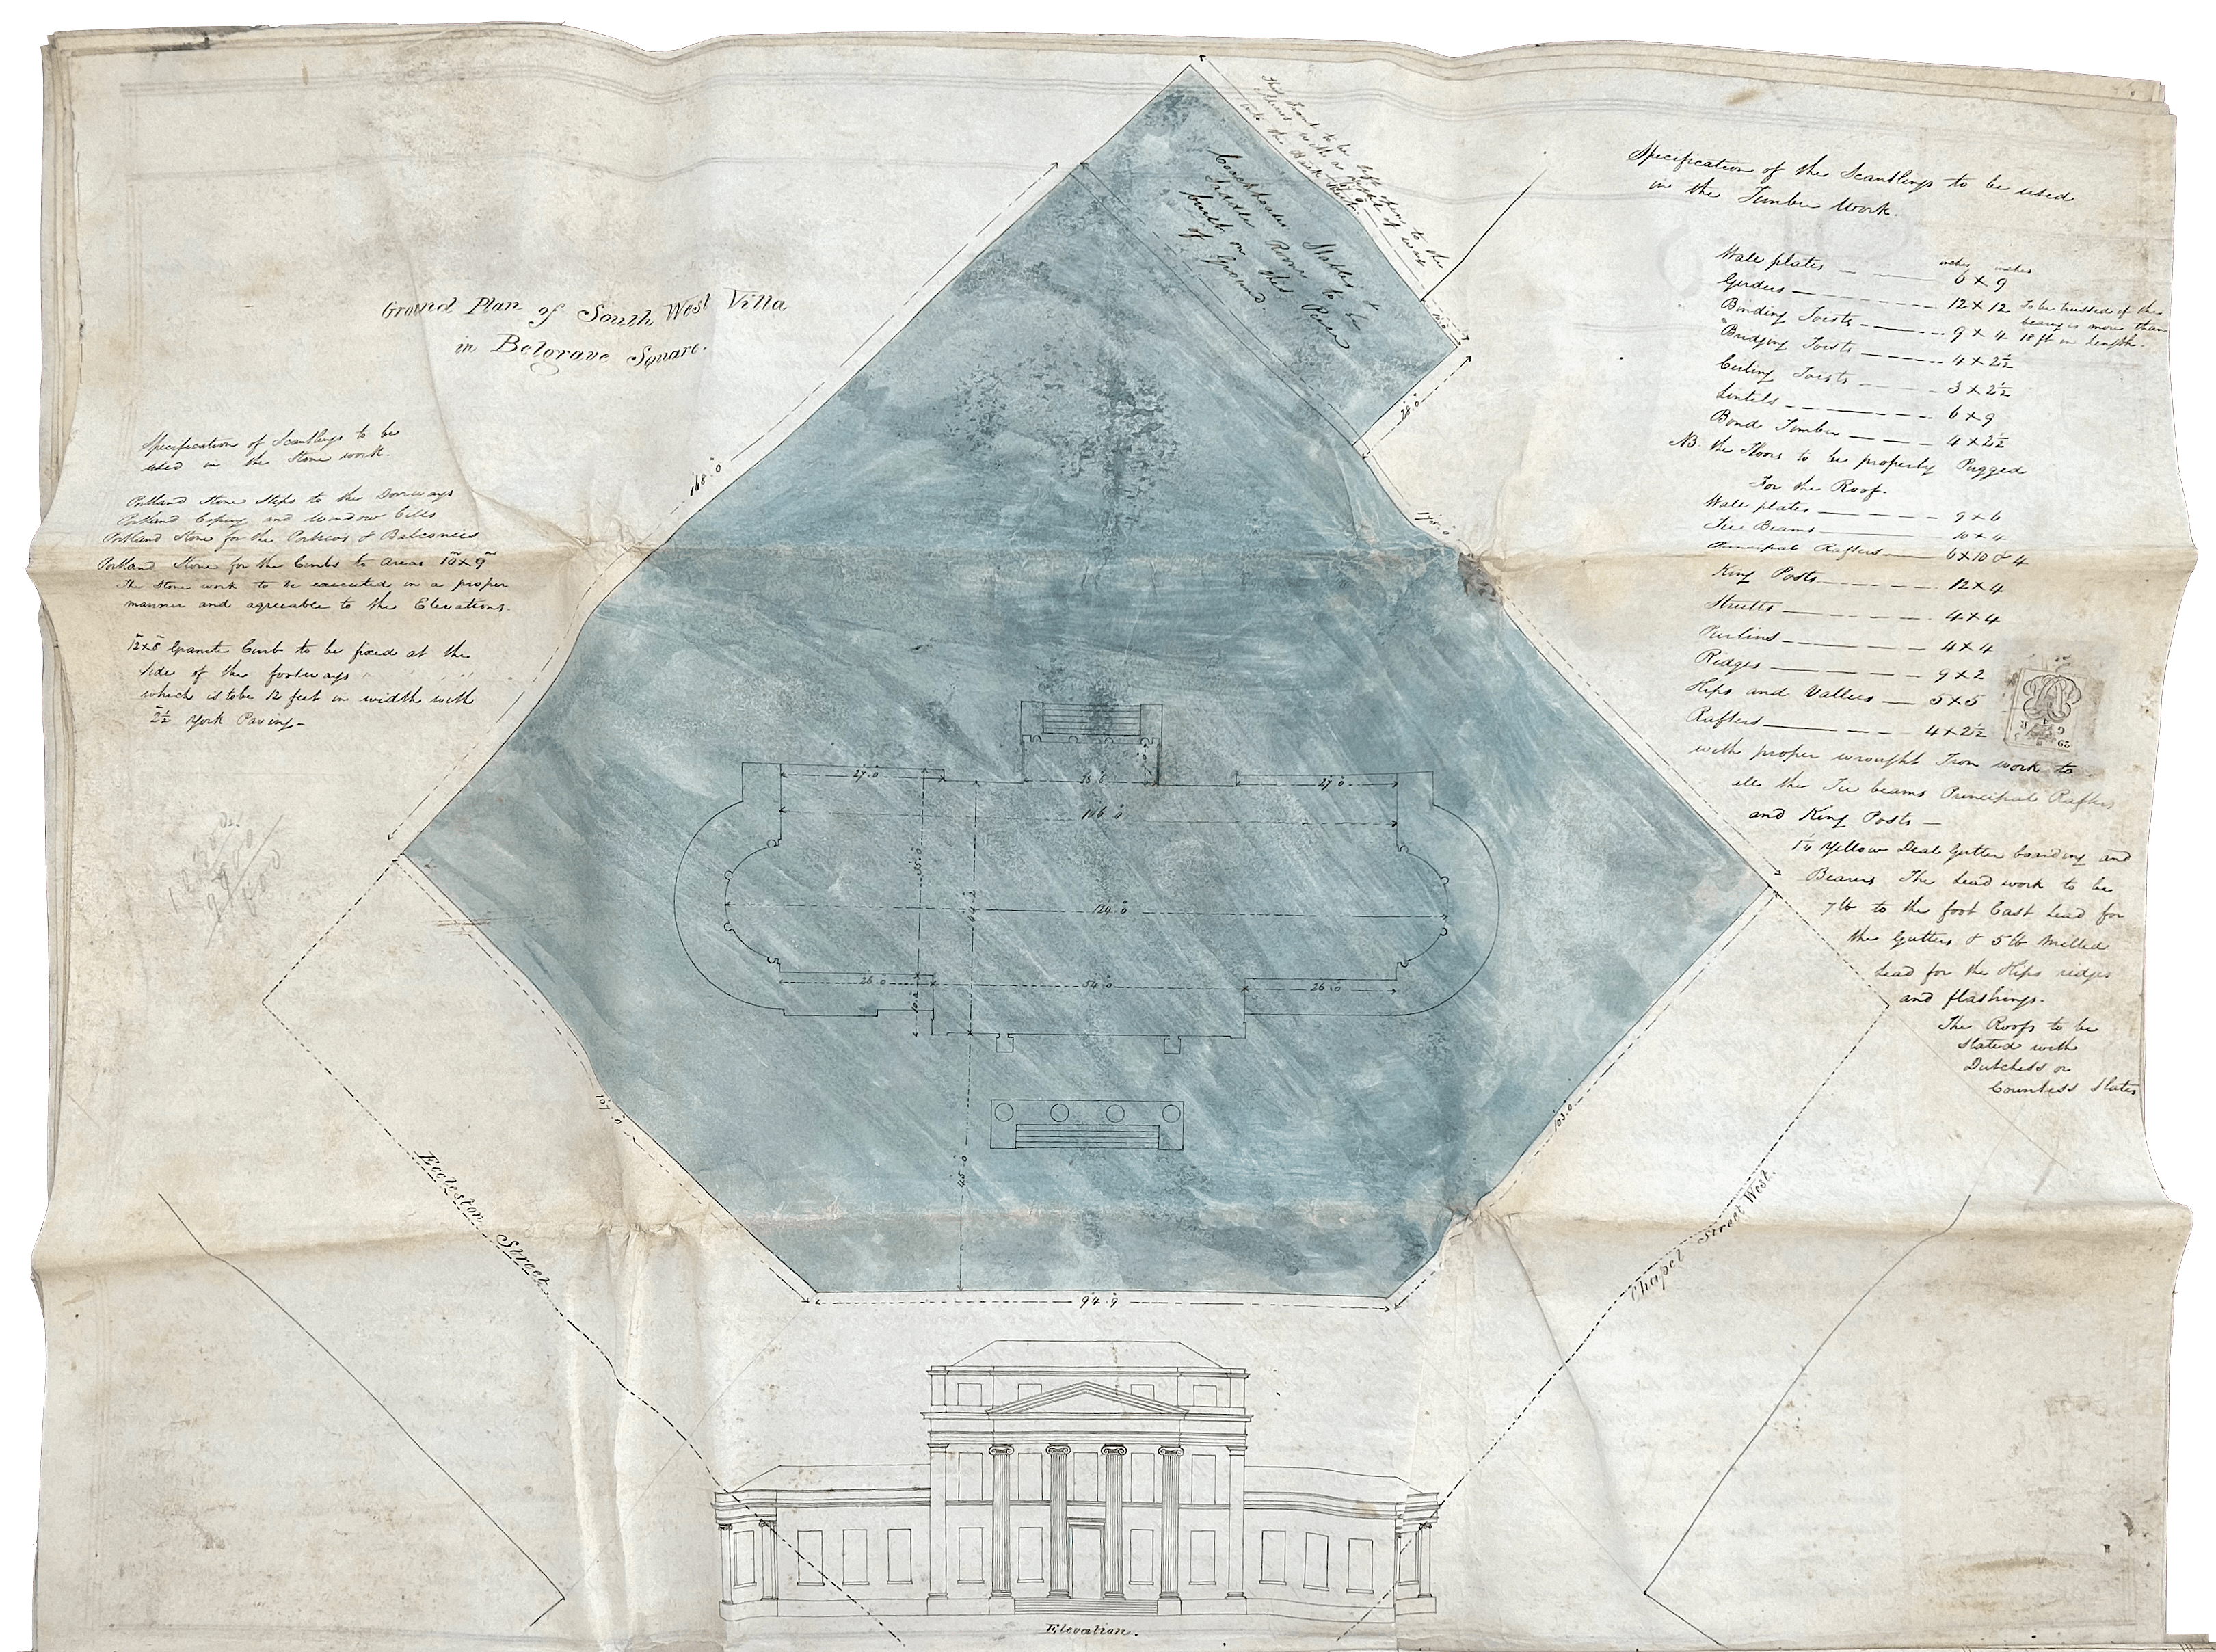 Ground Plan of South West Villa
in Belgrave Square.
Specification of Scantlings to be
used in the Stone work.
Portland Stone Steps to the Doorways
Portland Coping and Window Cills
Portland Stone for the Porticos & Balconies
Portland Stone for the Curbs to Areas 10 x 9
The Stone work to be executed in a proper
manner and agreeable to the Elevations.
12x8 Granite Curb to be fixed at the
side of the footways
which is to be 12 feet in width with
2½ York Paving-
This Front to be left open to the
Mews with a right of way
into the Back Street
Coachhouses Stables &
Saddle Rooms to be
built on this Piece
of Ground.
168.0
28.0
175.0
27.0
27.0
106.0
124.0
26.0
54.0
26.0
45.0
107.0
103.0
94.9
Eccleston Street
Chapel Street West.
Elevation.
Specification of the Scantlings to be used
in the Timber Work.
inches inches
Wall plates 6 x 9
Girders 12 x 12 To be trussed if the
bearing is more than
Binding Joists 9 x 4 18 ft in Length.
Bridging Joists 4 x 2½
Ceiling Joists 3 x 2½
Lintels 6 x 9
Bond Timber 4 x 2½
NB. the Floors to be properly Pugged
For the Roof.
Wall plates 9 x 6
Tie Beams 10 x 4
Principal Rafters 6 x 10 & 4
King Posts 12 x 4
Strutts 4 x 4
Purlins 4 x 4
Ridges 9 x 2
Hips and Vallies 5 x 5
Rafters 4 x 2½
with proper wrought Iron work to
all the Tie beams Principal Rafters
and King Posts —
1¼ Yellow Deal Gutter boarding and
Bearers The Lead work to be
7 lb to the foot Cast Lead for
the Gutters & 5 lb Milled
Lead for the Hips ridges
and flashings.
The Roofs to be
slated with
Dutchess or
Countess Slates